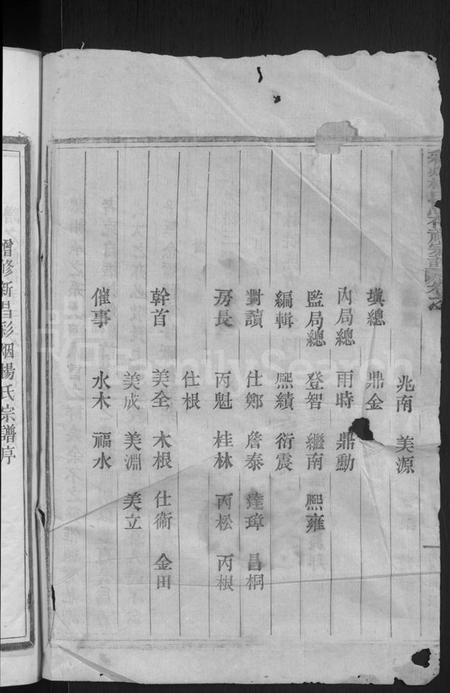 兆南 美源
填總 鼎金
內局總 雨時 鼎勳
監局總 登智 繼南 熙雍
編輯 熙績 衍震
對讀 仕鄉 詹泰 達璋 昌桐
房長 丙魁 桂林 丙松 丙根
仕根
幹首 美全 木根 仕衛 金田
美成 美淵 美立
催事 水木 福水
增修新昌彩烟楊氏宗譜序
FamilySearch